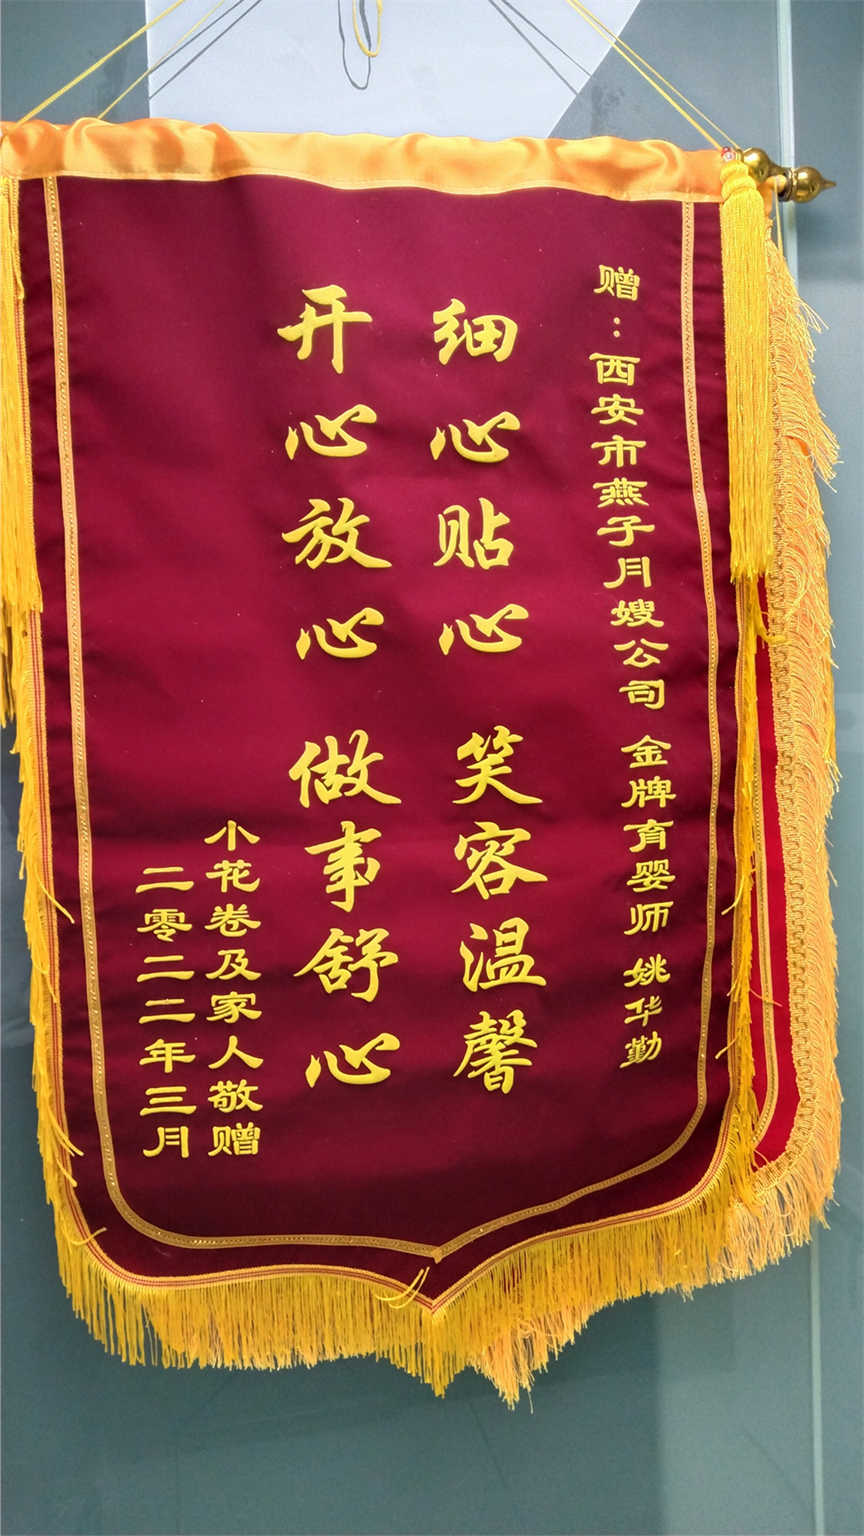 赠：西安市燕子月嫂公司 金牌育婴师 姚华勤
细心贴心 笑容温馨
开心放心 做事舒心
小花卷及家人敬赠
二零二二年三月